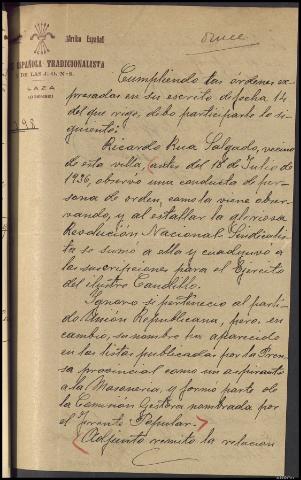 ¡Arriba España!
ESPAÑOLA TRADICIONALISTA
Y DE LAS J. O. N-S.
LAZA
(ORENSE)
298
once
Cumpliendo las órdenes ex-
presadas en su escrito de fecha 14
del que rige, debo participarle lo si-
guiente:
Ricardo Rua Salgado, vecino
de esta villa, antes del 18 de Julio de
1936, observó una conducta de per-
sona de orden, como la viene obser-
vando, y al estallar la gloriosa
Revolución Nacional Sindicalis-
ta se sumó a ella y coadyuvó a
las suscripciones para el Ejército
del Ilustre Caudillo.
Ignoro si perteneció al parti-
do Unión Republicana, pero en
cambio, su nombre ha aparecido
en las listas publicadas por la Pren-
sa provincial como un aspirante
a la Masonería, y formó parte de
la Comisión Gestora nombrada por
el Frente Popular.
Adjunto remito la relación